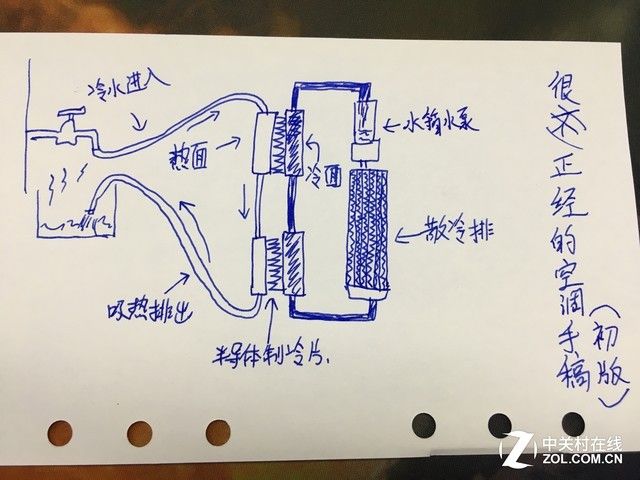 冷水进入
热面
冷面
水箱水泵
散冷排
吸热排出
半导体制冷片.
很(不)正经的空调手稿
(初版)
中关村在线
ZOL.COM.CN